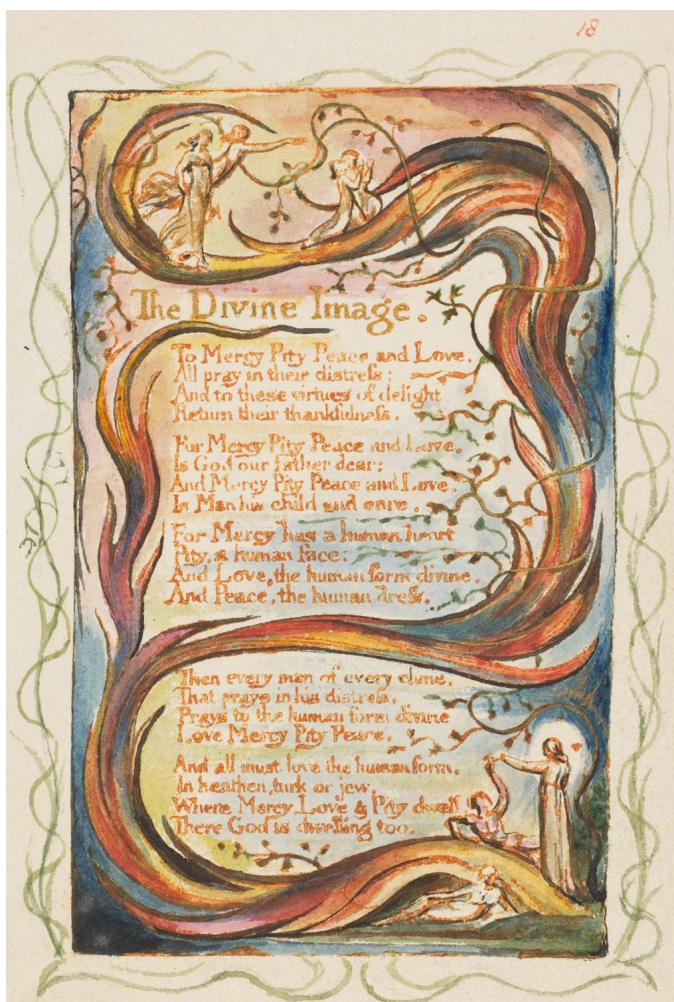 18
The Divine Image.
To Mercy Pity Peace and Love,
All pray in their distreſs:
And to these virtues of delight
Return their thankfulneſs.
For Mercy Pity Peace and Love,
Is God our father dear:
And Mercy Pity Peace and Love,
Is Man his child and care.
For Mercy has a human heart
Pity, a human face:
And Love, the human form divine,
And Peace, the human dreſs.
Then every man of every clime,
That prays in his distreſs,
Prays to the human form divine
Love Mercy Pity Peace.
And all must love the human form,
In heathen, turk or jew.
Where Mercy, Love & Pity dwell
There God is dwelling too.